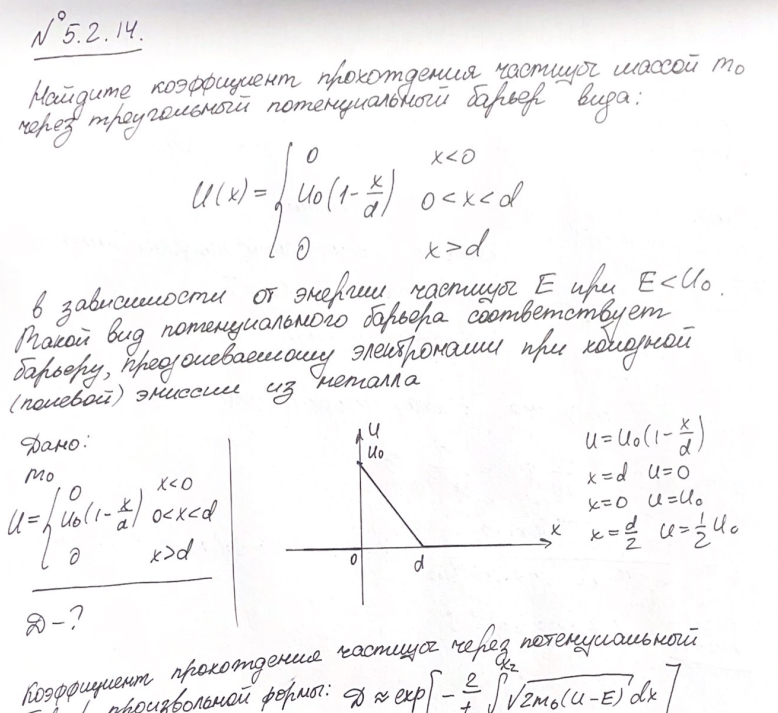 № 5.2.14.
Найдите коэффициент прохождения частицы массой m₀
через треугольный потенциальный барьер вида:
U(x) = { 0 x<0
U₀(1-x/d) 0<x<d
0 x>d
в зависимости от энергии частицы E при E<U₀.
Такой вид потенциального барьера соответствует
барьеру, преодолеваемому электронами при холодной
(полевой) эмиссии из металла
Дано:
m₀
U = { 0 x<0
U₀(1-x/d) 0<x<d
0 x>d
D-?
U
U₀
0
d
x
U=U₀(1-x/d)
x=d U=0
x=0 U=U₀
x=d/2 U=1/2 U₀
Коэффициент прохождения частицы через потенциальный
произвольной формы: D ≈ exp[-2/ ∫ x₂ √2m₀(U-E) dx]